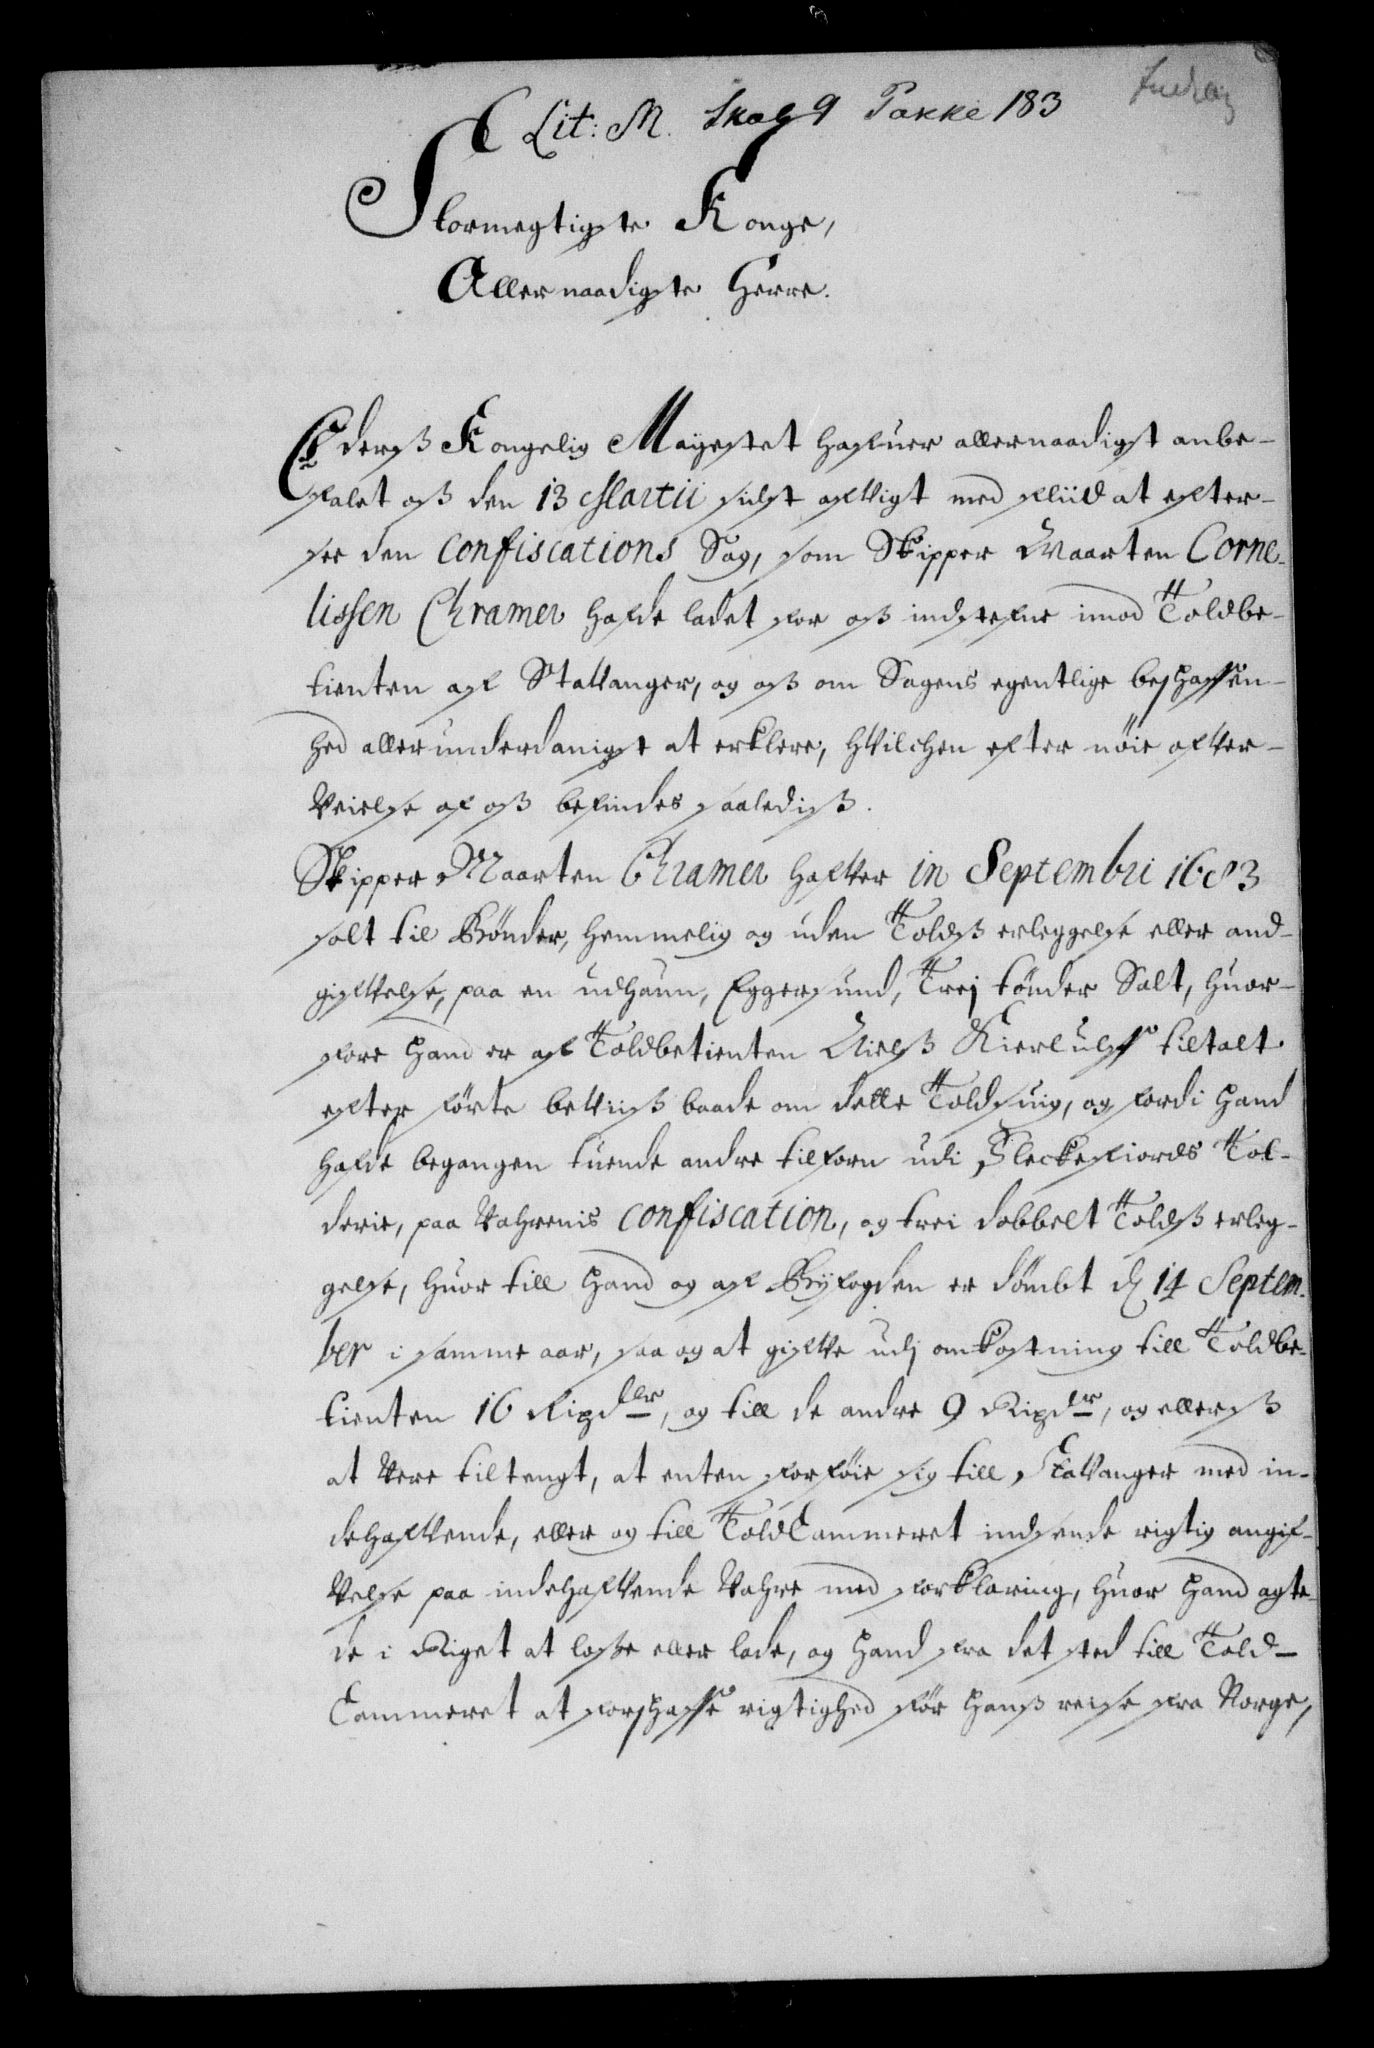 Lit: M. Skab 9 Pakke 183
Stormegtigste Konge,
Allernaadigste Herre.
Ederß Kongelig Mayestet hafuer allernaadigst anbe-
falet oß den 13 Martii sidst afvigt med fliid at efter-
see den Confiscations Sag, som Skipper Maarten Corne-
lissen Chramer hafde ladet for oß indstefne imod Toldbe-
tienten af Stavanger, og oß om Sagens egentlige beschaffen-
hed allerunderdanigst at erklere, hvilchen efter nøie ofver-
veielse af oß befindes saaledisß.
Skipper Maarten Chramer hafver in Septembri 1683
solt til Bønder, hemmelig og uden Toldß erleggelse eller and-
gifvelse, paa en udhaun, Eggersund, Trej tønder Salt, huor-
fore hand er af Toldbetienten Nielß Kierulff tiltalt
efter førte beviiß baade om dette Toldsuig, og fordi hand
hafde begangen tuende andre tilforn udi Fleckefiords Tol-
derie, paa Vahrenis Confiscation, og trei dobbelt Toldß erleg-
gelse, huor till hand og af Byfogden er dømbt d. 14 Septem-
ber i samme aar, saa og at gifve udj omkostning till Toldbe-
tienten 16 Rixdlr, og till de andre 9 Rixdr, og ellerß
at vere tiltengt, at enten forføie sig till Stavanger med in-
dehafvende, eller og till ToldCammeret indsende rigtig angif-
velse paa indehafvende Vahre med forklaring, huor hand agte-
de i Riget at losse eller lade, og hand fra det sted till Told-
Cammeret at forschaffe rigtighed før hanß reise fra Norge,